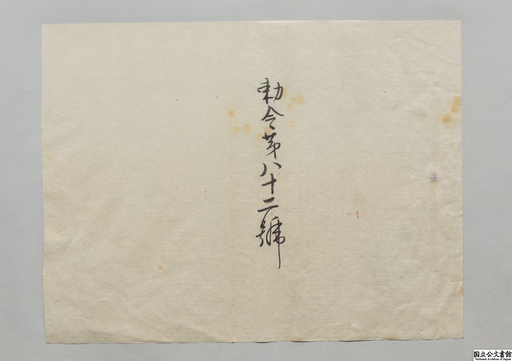 勅令第八十二號
国立公文書館
National Archives of Japan